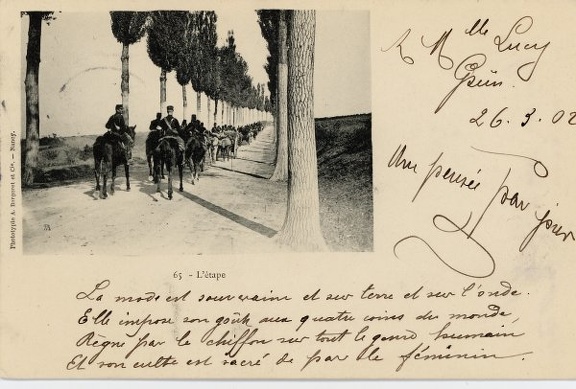 A Mlle Lucy
26.3.02
Une pensée par jour
Phototypie A. Bergeret et Cie. — Nancy.
65 - L'étape
La mode est souveraine et sur terre et sur l'onde.
Elle impose son goût aux quatre coins du monde,
Règne par le chiffon sur tout le genre humain
Et son culte est sacré de par le féminin.